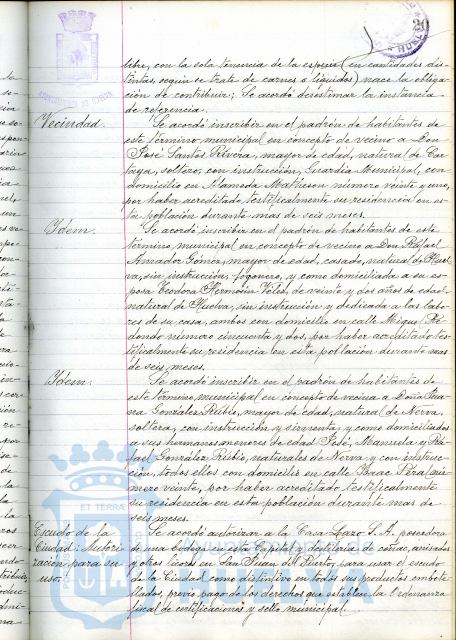 20
libre, con la sola tenencia de la especie (en cantidades dis-
tintas según se trate de carnes o líquidos) nace la obliga-
ción de contribuir; Se acordó desestimar la instancia
de referencia.
Vecindad.
Se acordó inscribir en el padrón de habitantes de
este término municipal en concepto de vecino a Don
José Santos Rivera, mayor de edad, natural de Car-
taya, soltero, con instrucción, Guardia Municipal, con
domicilio en Alameda Matheson número veinte y uno,
por haber acreditado testificalmente su residencia en es-
ta población durante mas de seis meses.
Idem.
Se acordó inscribir en el padrón de habitantes de este
término municipal en concepto de vecino a Don Rafael
Amador Gómez, mayor de edad, casado, natural de Huel-
va, sin instrucción, fogonero, y como domiciliada a su es-
posa Teodora Hermosin Veles, de veinte y dos años de edad,
natural de Huelva, sin instrucción y dedicada a las labo-
res de su casa, ambos con domicilio en calle Miguel Re-
dondo número cincuenta y dos, por haber acreditado tes-
tificalmente su residencia en esta población durante mas
de seis meses.
Idem.
Se acordó inscribir en el padrón de habitantes de
este término municipal en concepto de vecina a Doña Jua-
na González Rubio, mayor de edad, natural de Nerva,
soltera, con instrucción y sirvienta, y como domiciliados
a sus hermanos menores de edad José, Manuela y Ra-
fael González Rubio, naturales de Nerva y con instruc-
ción, todos ellos con domicilio en calle Isaac Peral nú-
mero veinte, por haber acreditado testificalmente
su residencia en esta población durante mas de
seis meses.
Escudo de la
Ciudad: Autori-
zación para su
uso.
Se acordó autorizar a la Casa Lazo S. A. poseedora
de una Bodega en esta Capital y destilería de coñac, anisados
y otros licores en San Juan del Puerto, para usar el escudo
de la Ciudad como distintivo en todos sus productos embote-
llados, previo pago de los derechos que establece la Ordenanza
fiscal de certificaciones y sello municipal.